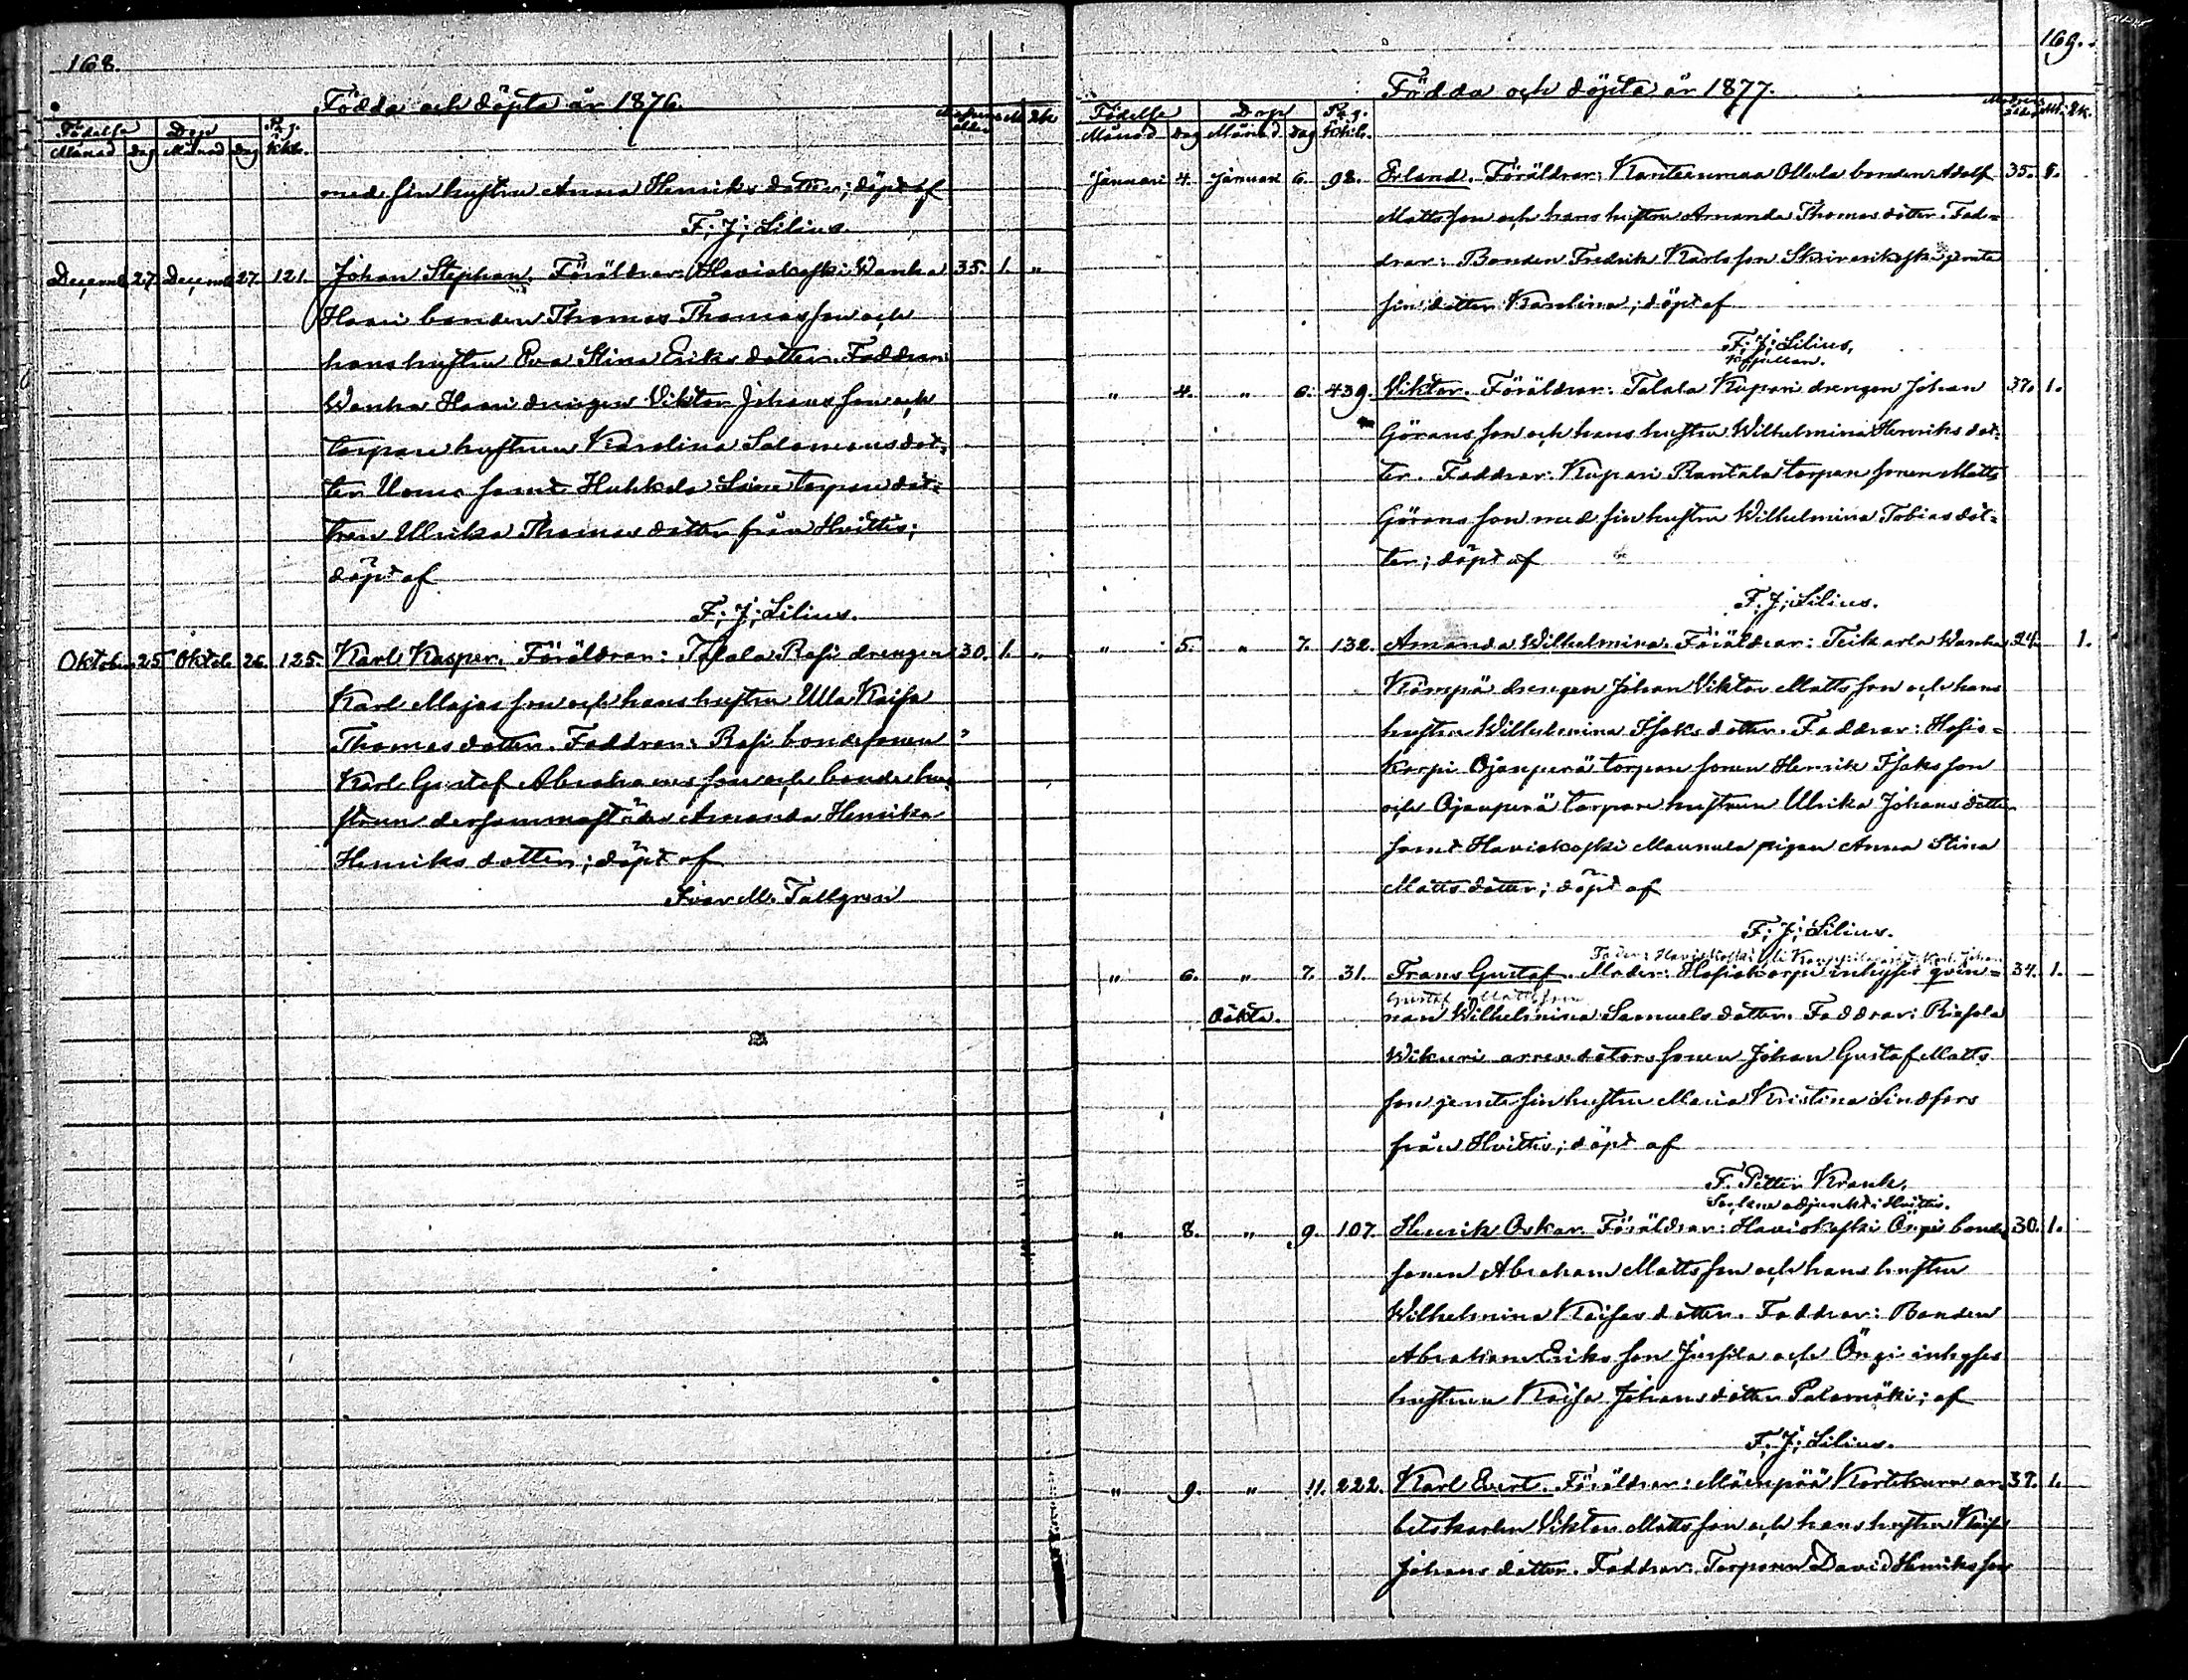 168.
Födda och döpta år 1876.
Födelse Dop Pag.
Månad Dag Månad Dag kkb. Moderns ålder M. Qk.
med sin hustru Anna Henriks dotter; döpt af
F. J; Lilius.
Decemb 27. Decemb 27. 121. Johan Stephan. Föräldrar: Haviokoski Wanha 35. 1. "
Haari bonden Thomas Thomasson och
hans hustru Eva Stina Eriks dotter. Faddrar:
Wanha Haari drängen Viktor Johansson och
torpare hustrun Karolina Salomonsdot=
ter samt Huhkola torpare dot=
tren Ulrika Thomas dotter från Hvittis;
döpt af
F; J; Lilius.
Oktober 25 Oktob. 26. 125. Karl Kasper. Föräldrar: Talala Rasi drengen 30. 1. "
Karl Majasson och hans hustru Ulla Kaisa
Thomasdotter. Faddrar: Rasi bondesonen
Karl Gustaf Abrahamsson och bonde hu=
strun dersammastädes Amanda Henrika
Henriks dotter; döpt af
Ivar M. Tallgren
169.
Födda och döpta år 1877.
Födelse Dop Pag.
Månad Dag Månad Dag kkb. Moderns ålder M. Qk.
Januari 4. Januari 6. 98. Erland. Föräldrar: Kanteenmaa Ollila bonden Adolf 35. 1.
Mattsson och hans hustru Amanda Thomas dotter. Fad=
drar: Bonden Fredrik Karlsson jemte
sin dotter Karolina; döpt af
F; J; Lilius,
Kapellan.
" 4. " 6. 439. Viktor. Föräldrar: Talala Kupari drengen Johan 37. 1.
Göransson och hans hustru Wilhelmina Henriks dot=
ter. Faddrar: Kupari Rantala torpare sonen Matts
Göransson med sin hustru Wilhelmina Tobias dot=
ter; döpt af
F. J; Lilius.
" 5. " 7. 132. Amanda Wilhelmina. Föräldrar: Teikarla Wanha 24. 1.
Kömpä drengen Johan Viktor Mattsson och hans
hustru Wilhelmina Isaksdotter. Faddrar: Hosio=
korpi Ojanperä torpare sonen Henrik Isaksson
och Ojanperä torpare hustrun Ulrika Johans dotter
samt Haviokoski Maunula pigan Anna Stina
Mattsdotter; döpt af
F; J; Lilius.
Fader: Haviokoski Yli Karl Johan
" 6. " 7. 31. Frans Gustaf. Moder: Hosiokorpi inhyses qvin= 34. 1.
Gustaf Mattsson
Oäkta. nan Wilhelmina Samuels dotter. Faddrar: Riesola
Wikuri arrendators sonen Johan Gustaf Matts
son jemte sin hustru Maria Kristina Lindfors
från Hvittis; döpt af
F. Petter Krank,
Sockne adjunkt i Hvittis.
" 8. " 9. 107. Henrik Oskar. Föräldrar: Haviokoski Öngi bonde 30. 1.
sonen Abraham Mattsson och hans hustru
Wilhelmina Kaisas dotter. Faddrar: Bonden
Abraham Eriksson Jussila och Öngi inhyses
hustrun Kaisa Johans dotter Palomäki; af
F. J; Lilius.
" 9. " 11. 222. Karl Evert. Föräldrar: Mäenpää Kortekura ar= 37. 1.
betskarlen Viktor Mattsson och hans hustru Kaisa
Johans dotter. Faddrar: Torparen David Henriksson